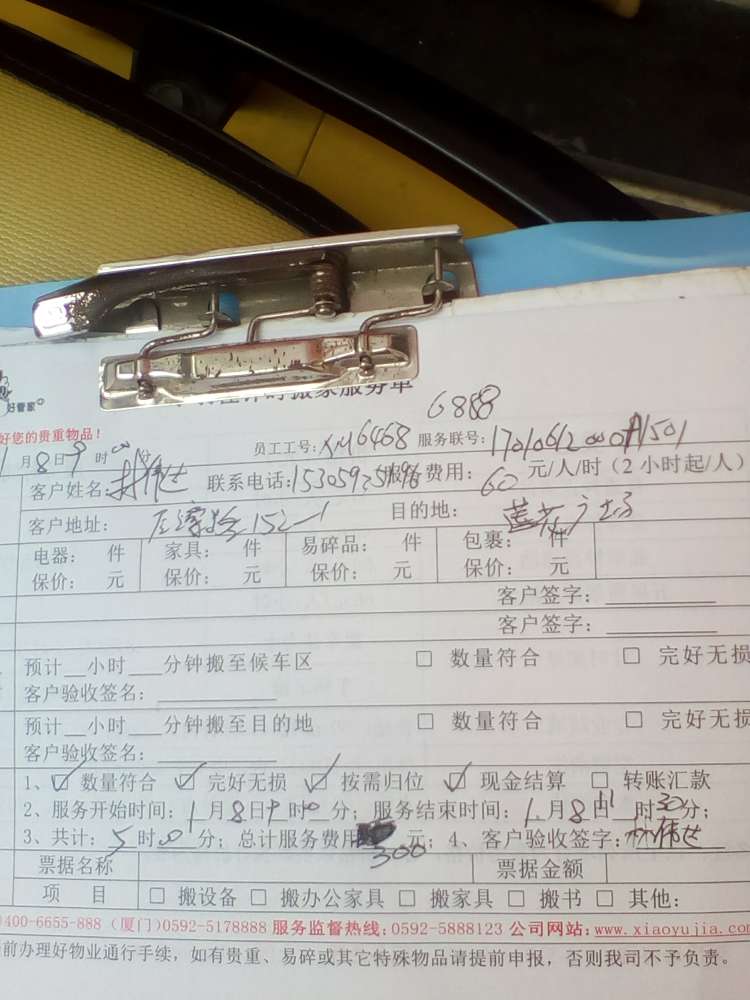 搬家服务单
好管家
6888
好您的贵重物品!
员工工号: XM6468 服务联号:
月8日9时00分
客户姓名: 联系电话: 费用: 60 元/人/时(2小时起/人)
客户地址: 目的地: 广场
电器: 件 家具: 件 易碎品: 件 包裹: 件
保价: 元 保价: 元 保价: 元 保价: 元
客户签字:
客户签字:
预计__小时___分钟搬至候车区 □ 数量符合 □ 完好无损
客户验收签名:
预计__小时___分钟搬至目的地 □ 数量符合 □ 完好无损
客户验收签名:
1、☑ 数量符合 ☑ 完好无损 ☑ 按需归位 ☑ 现金结算 □ 转账汇款
2、服务开始时间: 1月8日9时0分; 服务结束时间: 1月8日11时30分;
3、共计: 5时0分; 总计服务费用 300 元; 4、客户验收签字:
票据名称 票据金额
项 目 □ 搬设备 □ 搬办公家具 □ 搬家具 □ 搬书 □ 其他:
0400-6655-888 (厦门)0592-5178888 服务监督热线: 0592-5888123 公司网站: www.xiaoyujia.com
前办理好物业通行手续,如有贵重、易碎或其它特殊物品请提前申报,否则我司不予负责。